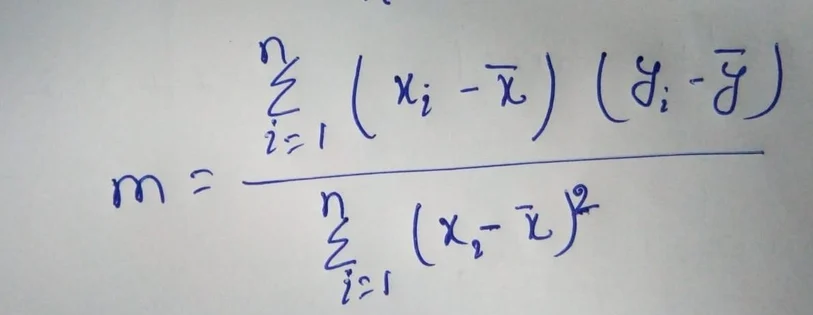 m = \frac{\sum_{i=1}^{n} (x_i - \bar{x}) (y_i - \bar{y})}{\sum_{i=1}^{n} (x_i - \bar{x})^2}